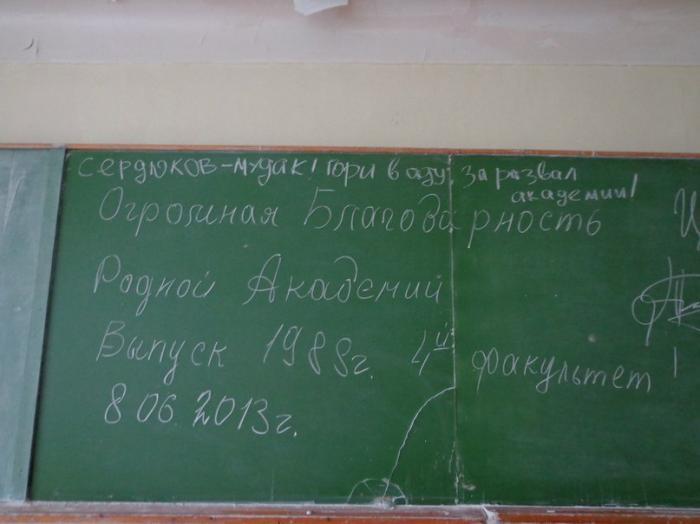 СЕРДЮКОВ-МУДАК! ГОРИ В АДУ, ЗА РАЗВАЛ
АКАДЕМИИ!
Огромная Благодарность
Родной Академий
Выпуск 1988г. 4й факультет!
8 06 2013г.